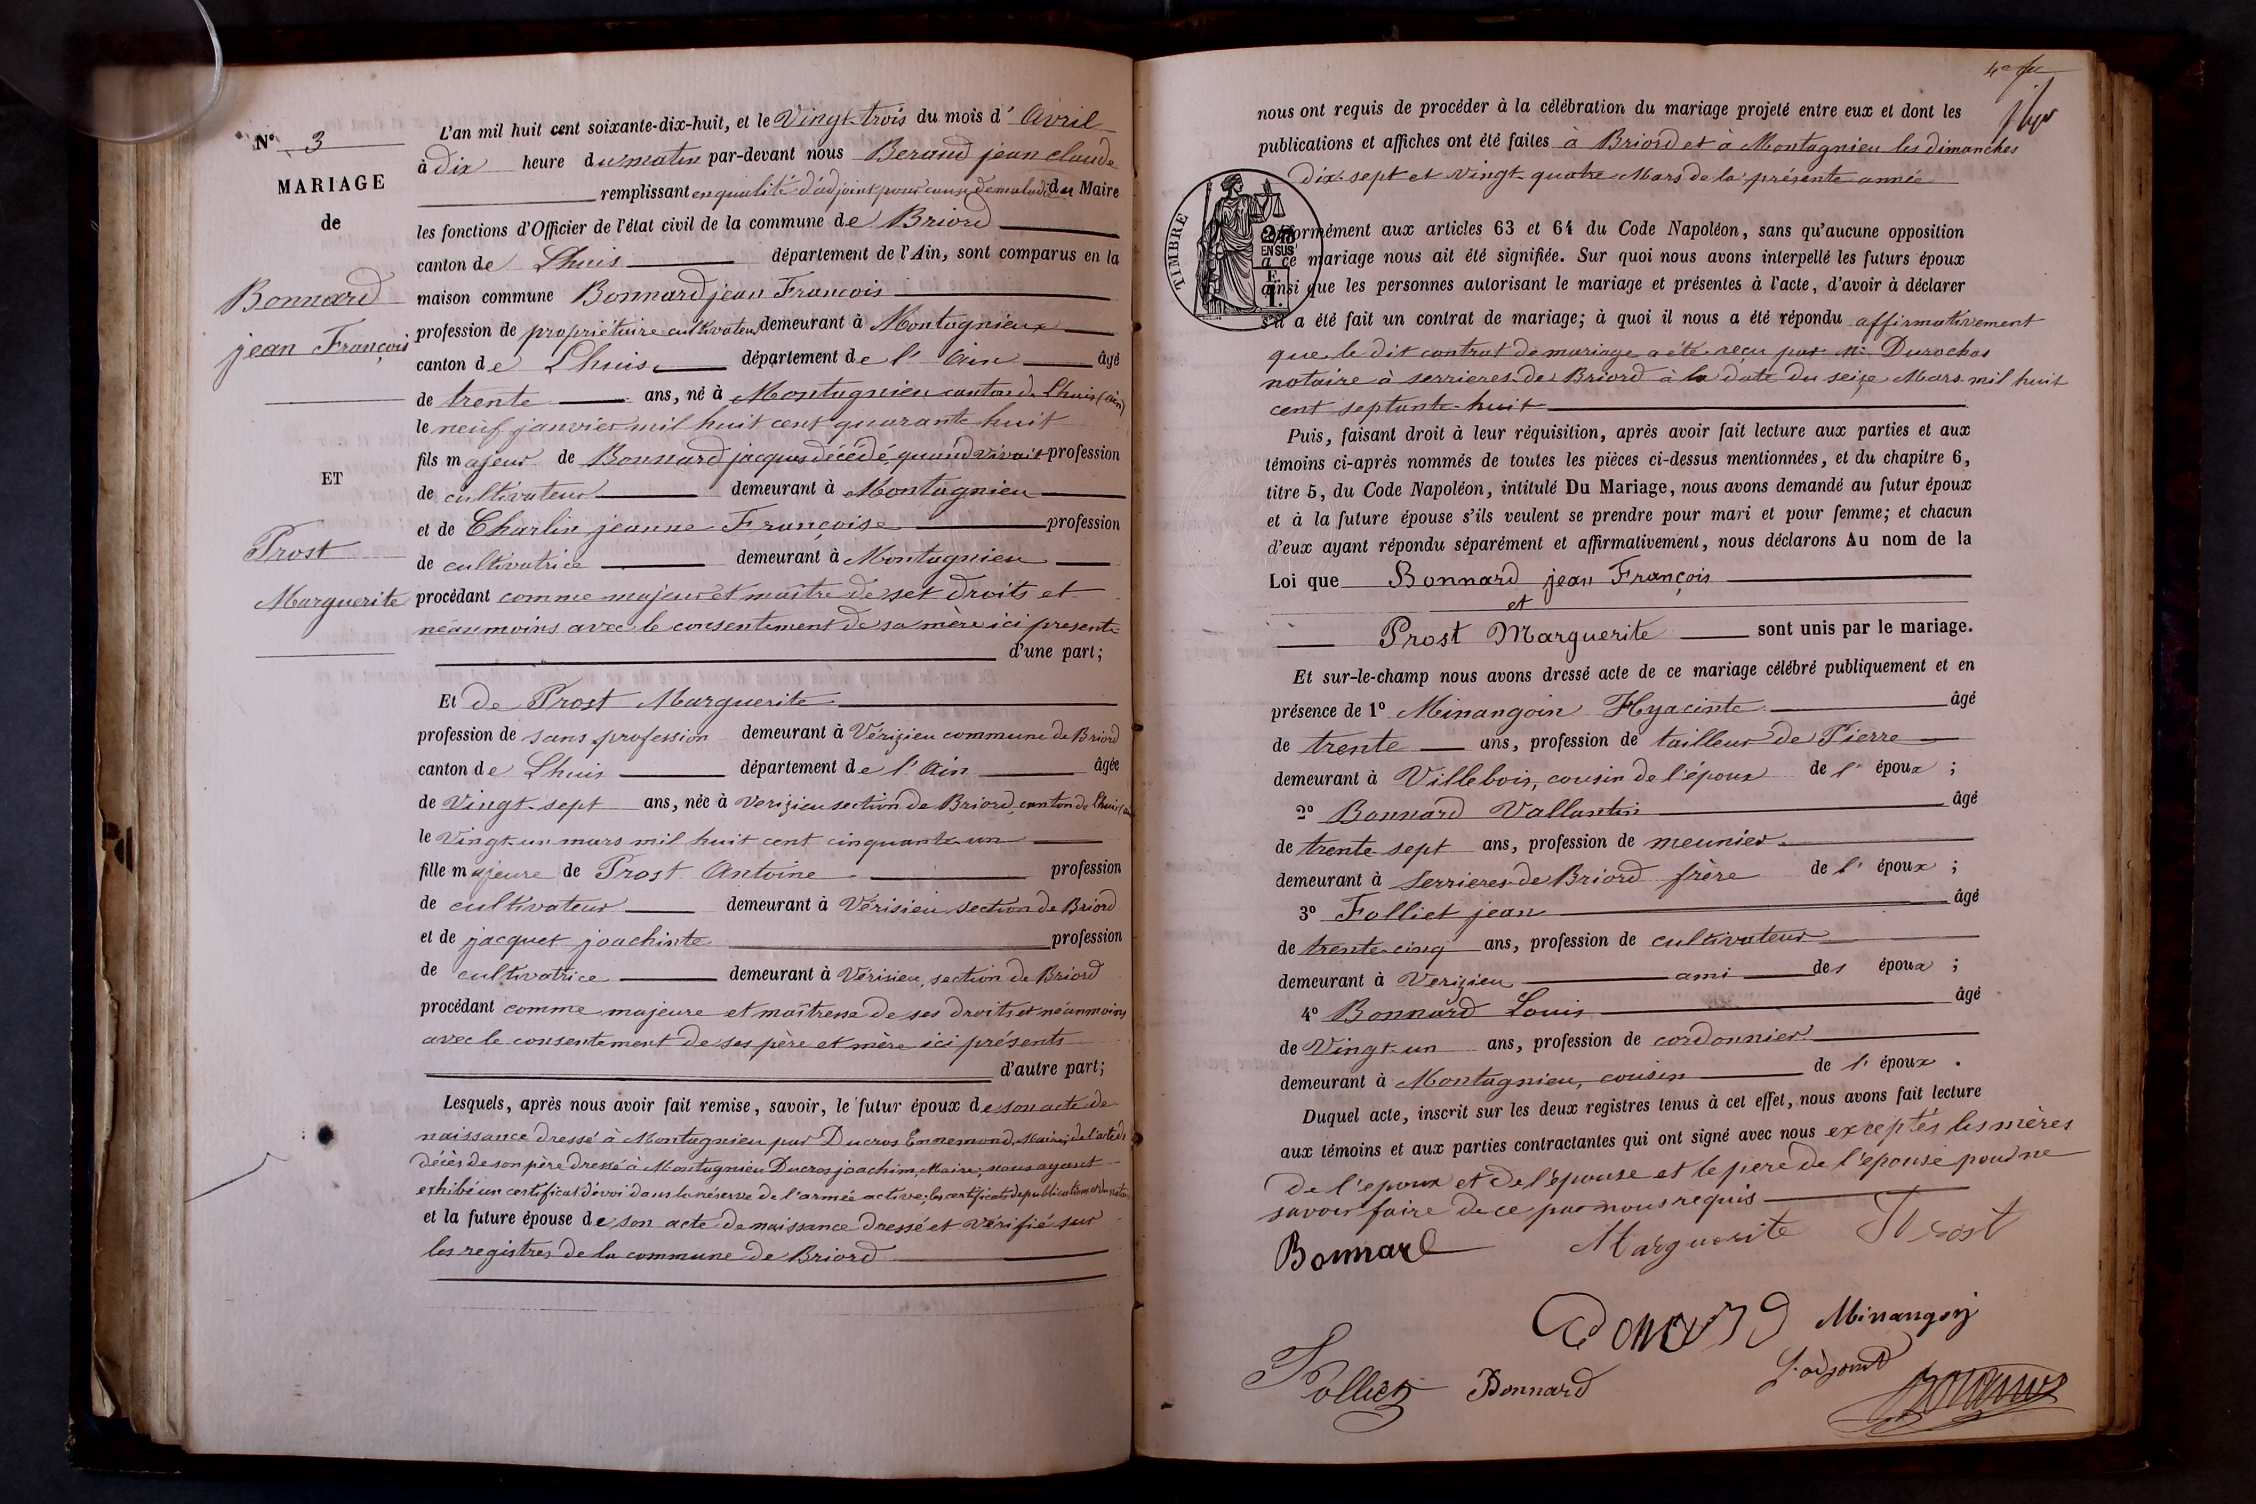 N° 3
MARIAGE
de
Bonnard
jean François
ET
Prost
Marguerite
L'an mil huit cent soixante-dix-huit, et le Vingt-trois du mois d' Avril
à dix heure du matin par-devant nous Beraud jean claude
remplissant en qualité d'adjoint pour cause de maladie du Maire
les fonctions d'Officier de l'état civil de la commune de Briord
canton de Lhuis département de l'Ain, sont comparus en la
maison commune Bonnard jean François
profession de propriétaire cultivateur demeurant à Montagnieux
canton de Lhuis département de l' Ain âgé
de trente ans, né à Montagnieu canton de Lhuis (ain)
le neuf janvier mil huit cent quarante huit
fils majeur de Bonnard jacques décédé, quand vivait profession
de cultivateur demeurant à Montagnieu
et de Charlin jeanne Françoise profession
de cultivatrice demeurant à Montagnieu
procédant comme majeur et maître de set droits et
néaumoins avec le consentement de sa mère ici presente
d'une part;
Et de Prost Marguerite
profession de sans profession demeurant à Vérizieu commune de Briord
canton de Lhuis département de l' Ain âgée
de Vingt-sept ans, née à Verizieu section de Briord, canton de Lhuis
le Vingt-un mars mil huit cent cinquante-un
fille majeure de Prost Antoine profession
de cultivateur demeurant à Vérisieu section de Briord
et de jacquet joachinte profession
de cultivatrice demeurant à Vérisieu, section de Briord
procédant comme majeure et maîtresse de ses droits et néanmoins
avec le consentement de ses père et mère ici présents
d'autre part;
Lesquels, après nous avoir fait remise, savoir, le futur époux de son acte de
naissance dressé à Montagnieu par Ducros Ennemond, Maire; de l'acte de
décès de son père dressé à Montagnieu Ducros joachim, Maire; nous ayant
exhibé un certificat d'envoi dans la réserve de l'armée active; les certificats de publications
et la future épouse de son acte de naissance dressé et vérifié sur
les registres de la commune de Briord
nous ont requis de procéder à la célébration du mariage projeté entre eux et dont les
publications et affiches ont été faites à Briord et à Montagnieu les dimanches
dix-sept et vingt-quatre Mars de la présente année
TIMBRE
EN SUS
conformément aux articles 63 et 64 du Code Napoléon, sans qu'aucune opposition
à ce mariage nous ait été signifiée. Sur quoi nous avons interpellé les futurs époux
ainsi que les personnes autorisant le mariage et présentes à l'acte, d'avoir à déclarer
s'il a été fait un contrat de mariage; à quoi il nous a été répondu affirmativement
que le dit contrat de mariage a été reçu par Durochas
notaire à serrieres-de Briord à la date du seize Mars mil huit
cent septante-huit
Puis, faisant droit à leur réquisition, après avoir fait lecture aux parties et aux
témoins ci-après nommés de toutes les pièces ci-dessus mentionnées, et du chapitre 6,
titre 5, du Code Napoléon, intitulé Du Mariage, nous avons demandé au futur époux
et à la future épouse s'ils veulent se prendre pour mari et pour femme; et chacun
d'eux ayant répondu séparément et affirmativement, nous déclarons Au nom de la
Loi que Bonnard jean François
et
Prost Marguerite sont unis par le mariage.
Et sur-le-champ nous avons dressé acte de ce mariage célébré publiquement et en
présence de 1° Minangoin Hyacinte âgé
de trente ans, profession de tailleur de Pierre
demeurant à Villebois, cousin de l'époux de l' époux ;
2° Bonnard Vallantin âgé
de trente-sept ans, profession de meunier
demeurant à Serrieres-de Briord frère de l' époux ;
3° Folliet jean âgé
de trente-cinq ans, profession de cultivateur
demeurant à Verizieu ami des époux ;
4° Bonnard Louis âgé
de Vingt-un ans, profession de cordonnier
demeurant à Montagnieu, cousin de l' époux .
Duquel acte, inscrit sur les deux registres tenus à cet effet, nous avons fait lecture
aux témoins et aux parties contractantes qui ont signé avec nous exceptés les mères
de l'epoux et de l'épouse et le pere de l'epouse pour ne
savoir faire de ce par nous requis
Bonnard Marguerite Prost
Minangoin
Folliet Bonnard L'adjoint